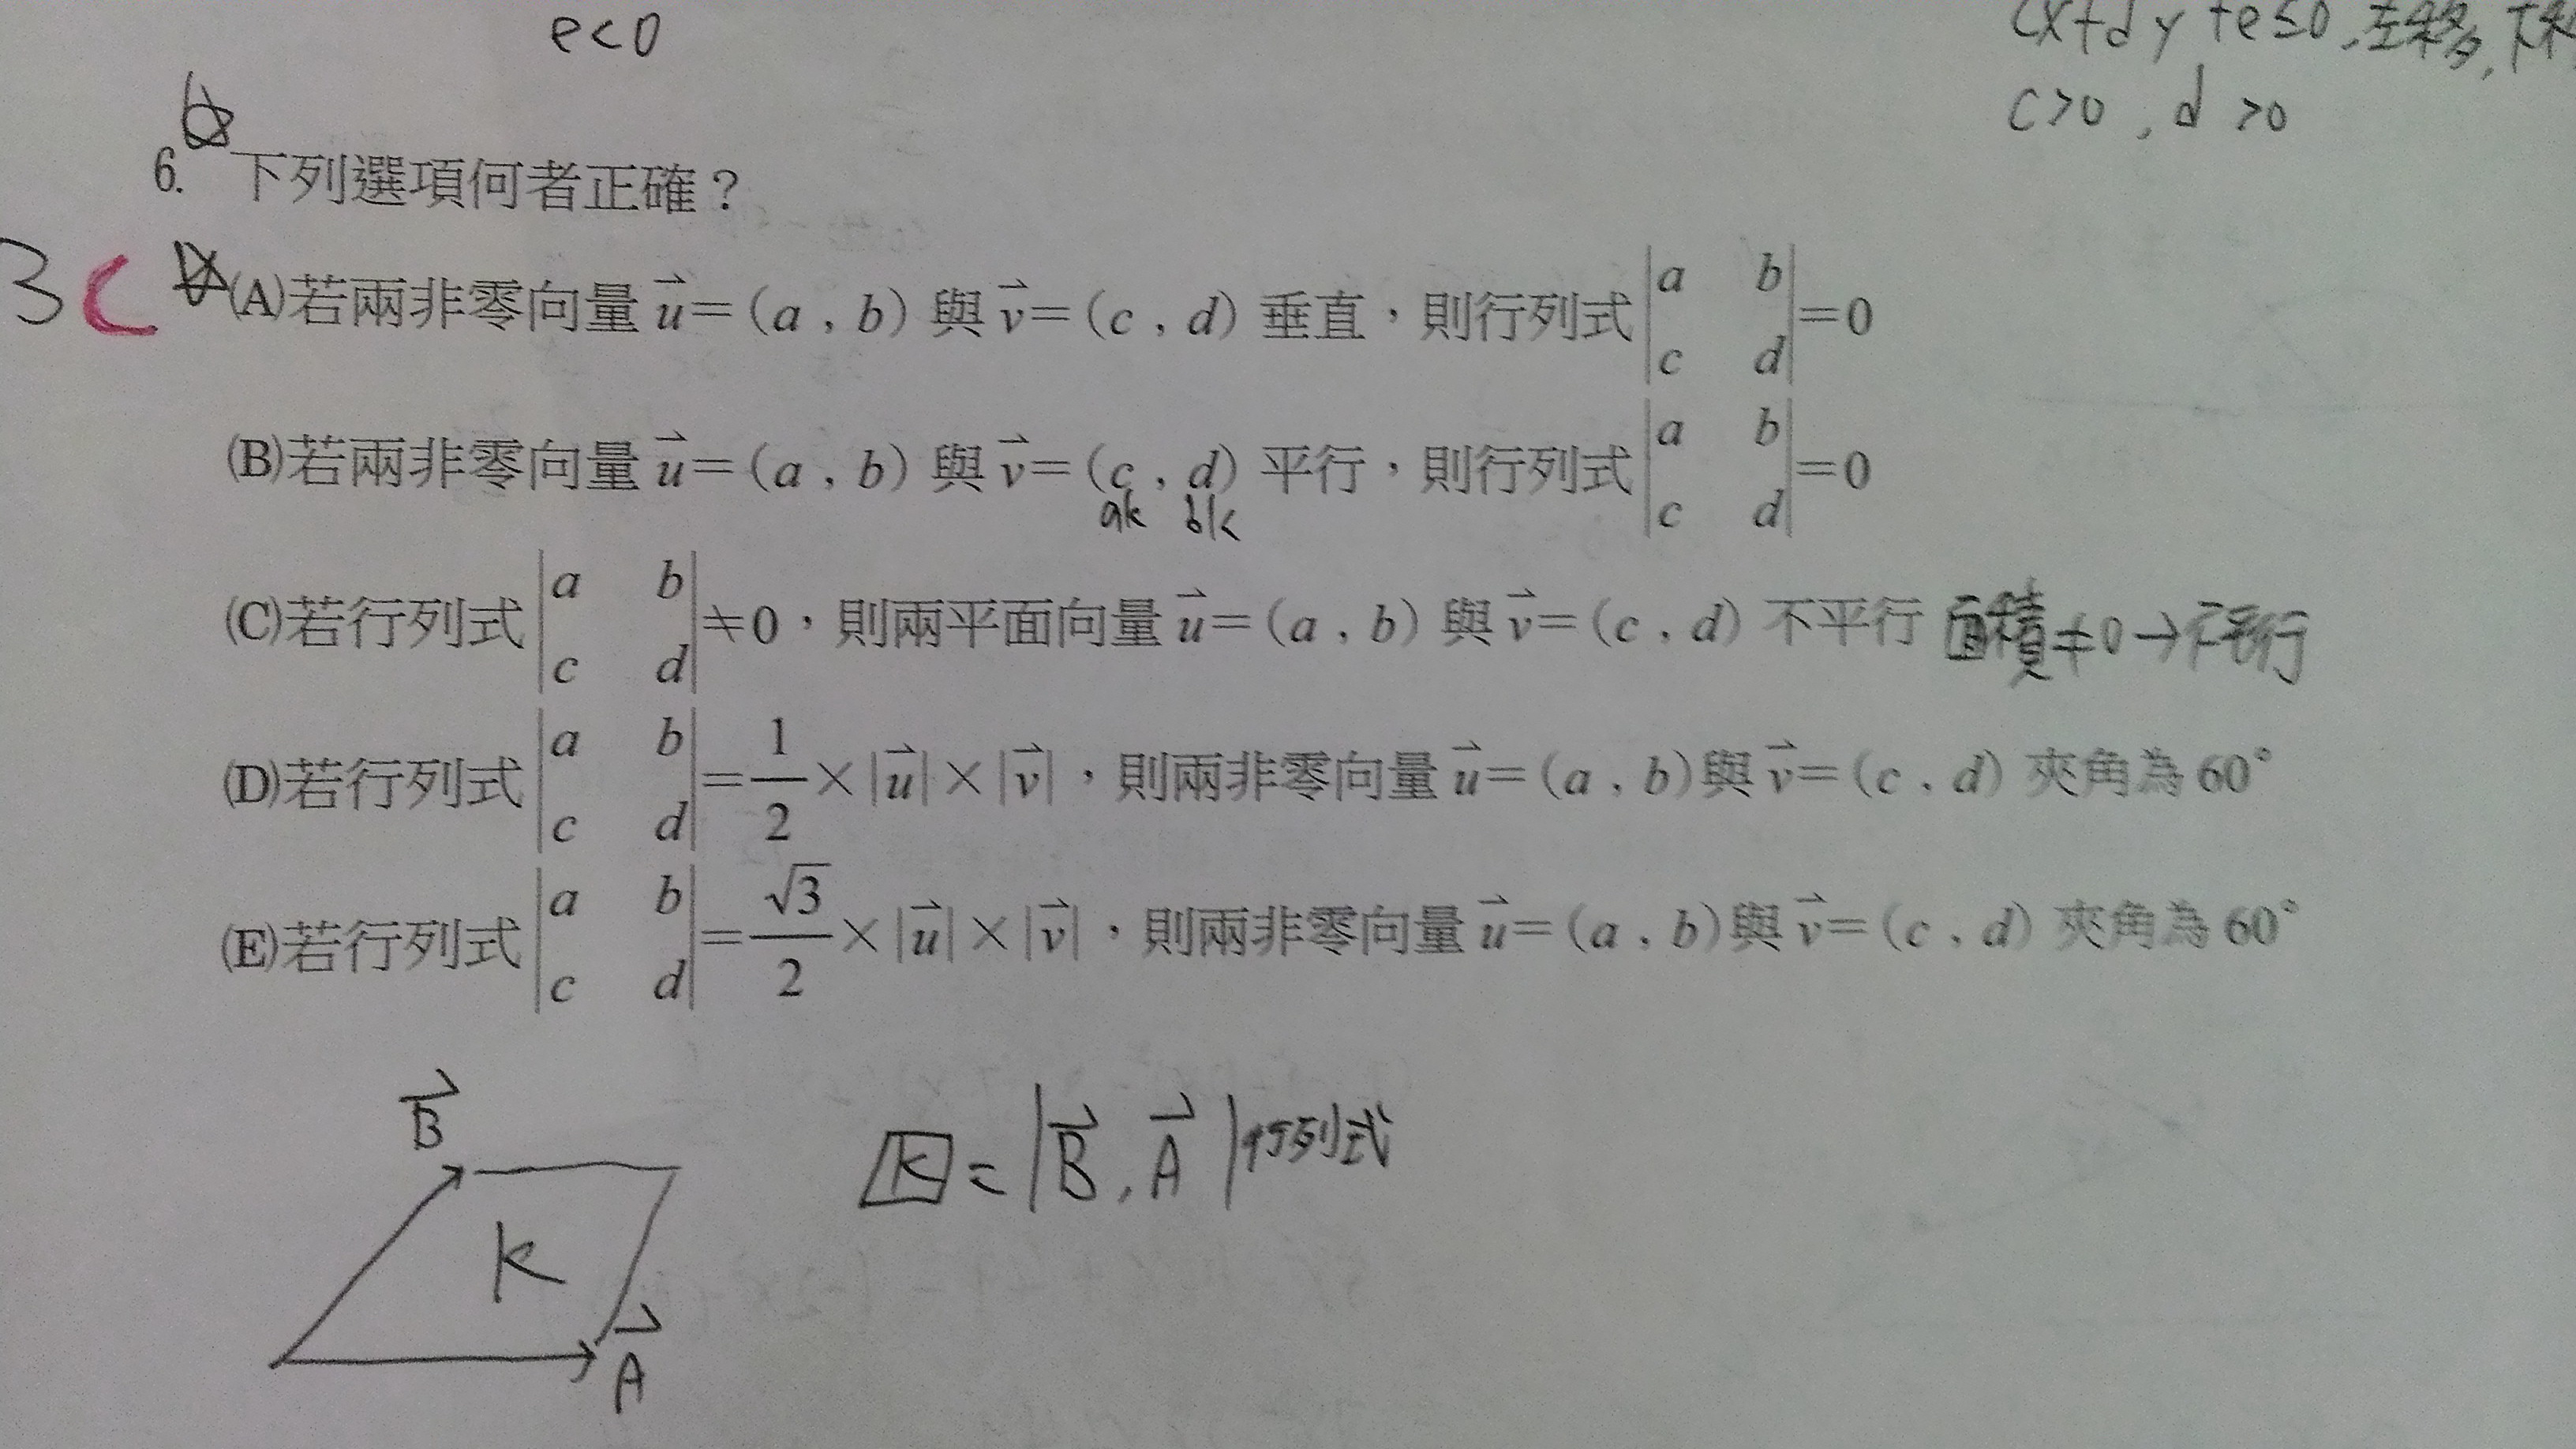 e<0
cx+dy+e≤0,左移,下移
c>0,d>0
6. 下列選項何者正確？
3 C (A)若兩非零向量 u⃗=(a,b) 與 v⃗=(c,d) 垂直，則行列式 |a b; c d|=0
(B)若兩非零向量 u⃗=(a,b) 與 v⃗=(c,d) 平行，則行列式 |a b; c d|=0
ak bk
(C)若行列式 |a b; c d|≠0，則兩平面向量 u⃗=(a,b) 與 v⃗=(c,d) 不平行 面積≠0→不平行
(D)若行列式 |a b; c d|=1/2×|u⃗|×|v⃗|，則兩非零向量 u⃗=(a,b)與 v⃗=(c,d) 夾角為 60°
(E)若行列式 |a b; c d|=√3/2×|u⃗|×|v⃗|，則兩非零向量 u⃗=(a,b)與 v⃗=(c,d) 夾角為 60°
B⃗
K = |B⃗,A⃗|行列式
K
A⃗